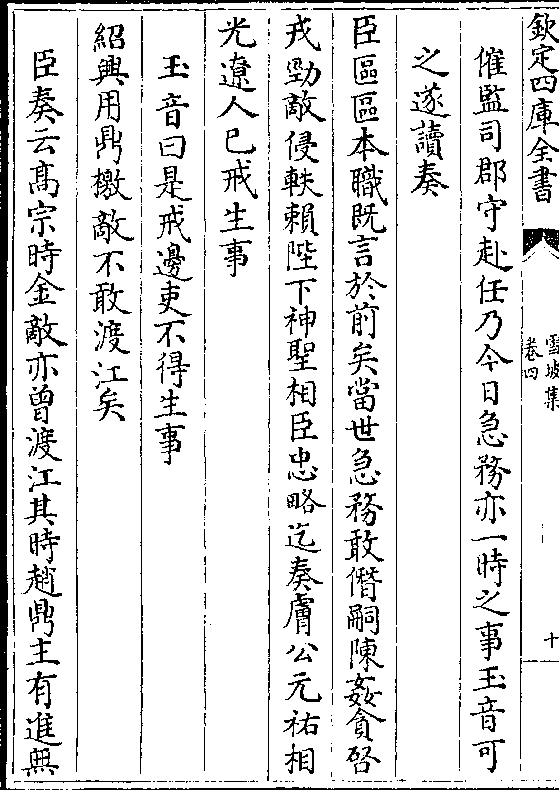 欽定四庫全書
雪坡集
卷四
十
催監司郡守赴任乃今日急務亦一時之事玉音可
之遂讀奏
臣區區本職既言於前矣當世急務敢僭嗣陳姦貪啓
戎勁敵侵軼賴陛下神聖相臣忠略迄奏膚公元祐相
光遼人已戒生事
玉音曰是戒邊吏不得生事
紹興用鼎檄敵不敢渡江矣
臣奏云髙宗時金敵亦曾渡江其時趙鼎主有進無